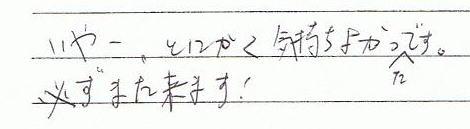 いやー、とにかく気持ちよかったです。
必ずまた来ます!